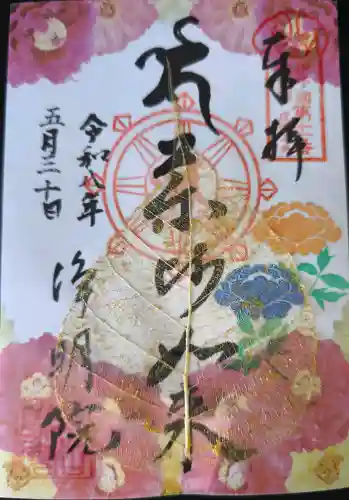 奉拝
薬師如来
令和八年
五月三十日
浄明院